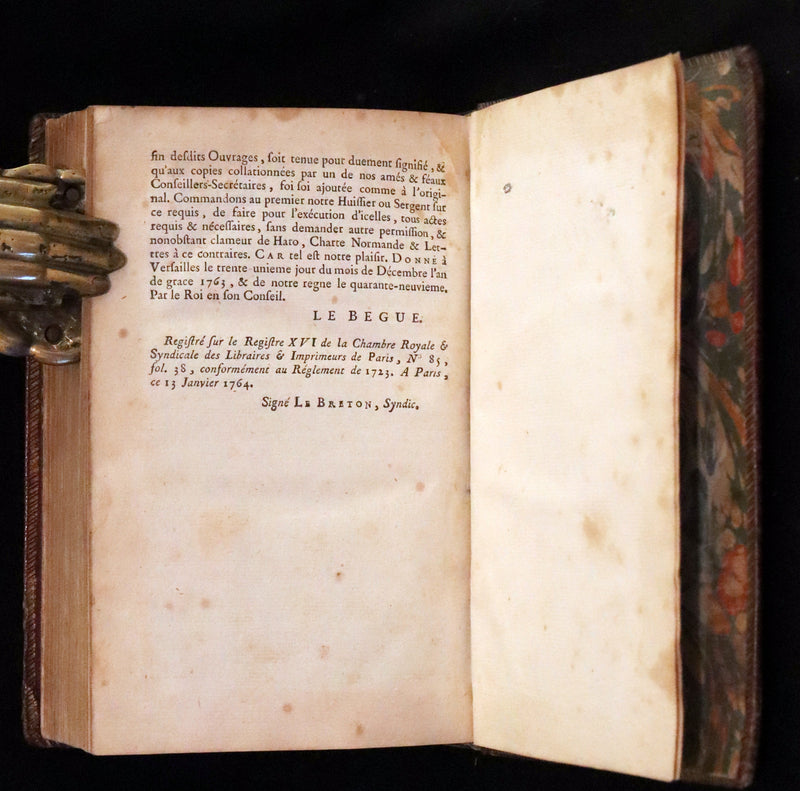 fin deſdits Ouvrages, ſoit tenue pour duement ſignifié, &
qu'aux copies collationnées par un de nos amés & féaux
Conſeillers-Secrétaires, foi ſoi ajoutée comme à l'origi-
nal. Commandons au premier notre Huiſſier ou Sergent ſur
ce requis, de faire pour l'exécution d'icelles, tous actes
requis & néceſſaires, ſans demander autre permiſſion, &
nonobſtant clameur de Haro, Charte Normande & Let-
tres à ce contraires. CAR tel eſt notre plaiſir. DONNÉ à
Verſailles le trente unieme jour du mois de Décembre l'an
de grace 1763, & de notre regne le quarante-neuvieme.
Par le Roi en ſon Conſeil.
LE BEGUE.
Regiſtré ſur le Regiſtre XVI de la Chambre Royale &
Syndicale des Libraires & Imprimeurs de Paris, N° 85,
fol. 38, conformément au Réglement de 1723. A Paris,
ce 13 Janvier 1764.
Signé LE BRETON, Syndic.